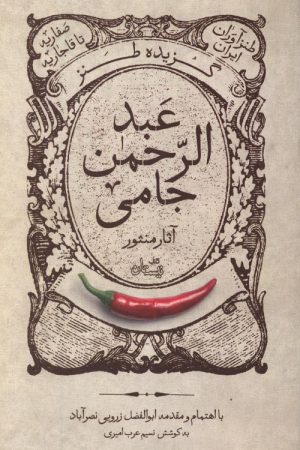 طنزآوران ایران
صفاریه تا قاجاریه
گزیده طنز
عَبد
الرّحمن
جامی
آثار منثور
کتاب نیستان
با اهتمام و مقدمه ابوالفضل زرویی نصرآباد
به کوشش نسیم عرب امیری